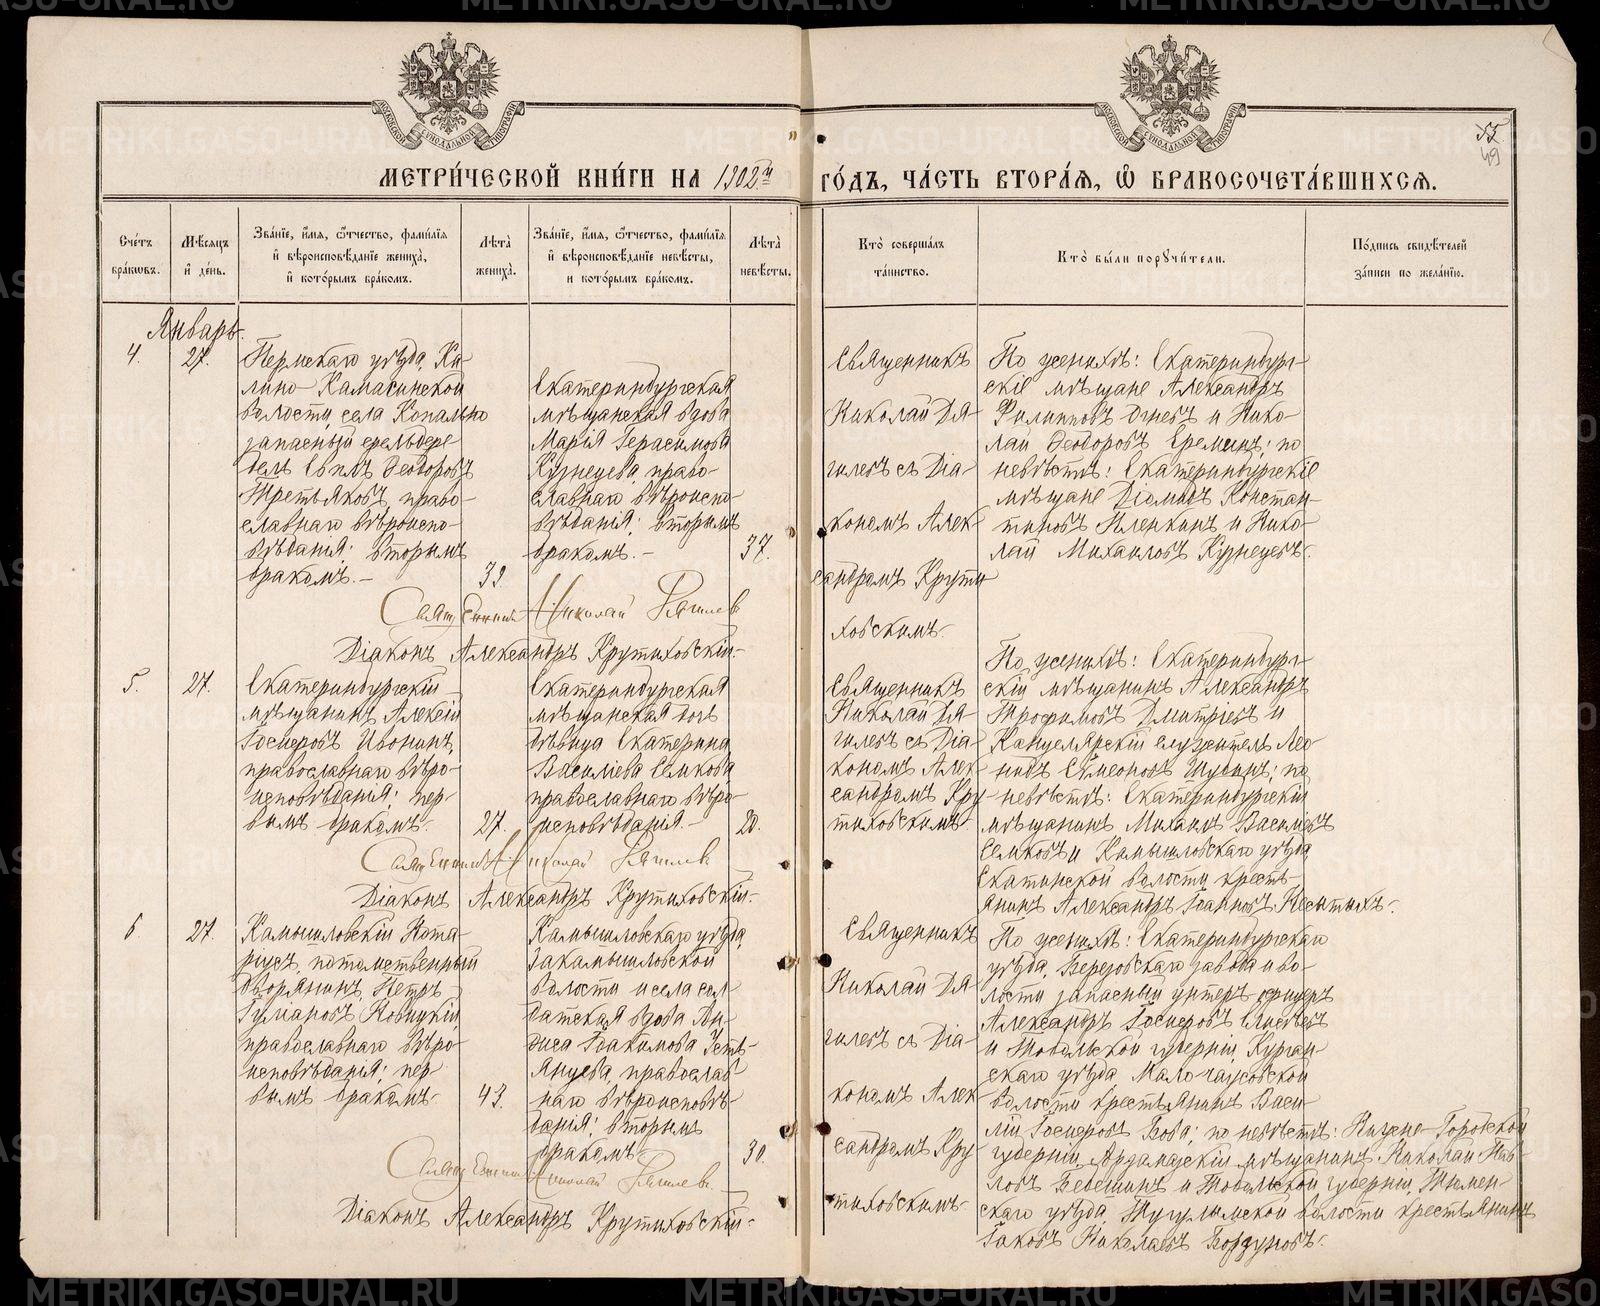 МЕТРИ́ЧЕСКОЙ КНИ́ГИ НА 1902й ГО́ДЪ, ЧА́СТЬ ВТОРА́Я, Ѡ БРАКОСОЧЕТА́ВШИХСЯ.
49
Сче́тъ бра́ковъ.
Мѣ́сяцъ и де́нь.
Зва́нїе, и́мя, о́тчество, фами́лїя
и вѣроисповѣ́данїе жениха̀,
и кото́рымъ бра́комъ.
Лѣта̀ жениха̀.
Зва́нїе, и́мя, о́тчество, фами́лїя
и вѣроисповѣ́данїе невѣ́сты,
и кото́рымъ бра́комъ.
Лѣта̀ невѣ́сты.
Кто̀ соверша́лъ
та́инство.
Кто̀ бы́ли поручи́тели.
По́дпись свидѣ́телей
за́писи по жела́нїю.
Январь.
4.
27.
Пермскаго уѣзда, Ка-
лино-Камасинской
волости, села Копально
запасный фельдфе
бель Евплъ Ѳеодоровъ
Третьяковъ, право-
славнаго вѣроиспо-
вѣданія; вторымъ
бракомъ.-
39.
Екатеринбургская
мѣщанская вдова
Марія Герасимова
Кузнецева, право-
славнаго вѣроиспо-
вѣданія; вторымъ
бракомъ.-
37.
Священникъ
Николай Дя-
гилевъ съ Діа-
кономъ Алек-
сандромъ Крути
ховскимъ.
По женихѣ: Екатеринбург-
скіе мѣщане Александръ
Филипповъ Огневъ и Нико-
лай Ѳеодоровъ Ереминъ; по
невѣстѣ: Екатеринбургскіе
мѣщане Діомидъ Констан-
тиновъ Пленкинъ и Нико-
лай Михаиловъ Кузнецевъ.
Священникъ Николай Дягилевъ
Діаконъ Александръ Крутиховскій.
5.
27.
Екатеринбургскій
мѣщанинъ Алексій
Іосифовъ Ивонинъ,
православнаго вѣро-
исповѣданія; пер-
вымъ бракомъ.
27.
Екатеринбургская
мѣщанская дочь
дѣвица Екатерина
Василіева Семкова
православнаго вѣро-
исповѣданія.-
20.
Священникъ
Николай Дя-
гилевъ съ Діа-
кономъ Алек-
сандромъ Кру-
тиховскимъ.
По женихѣ: Екатеринбург-
скій мѣщанинъ Александръ
Трофимовъ Дмитріевъ и
Канцелярскій служитель Лео-
нидъ Сѵмеоновъ Шубинъ; по
невѣстѣ: Екатеринбургскій
мѣщанинъ Михаилъ Василіевъ
Семковъ и Камышловскаго уѣзда
Скатинской волости кресть-
янинъ Александръ Іоанновъ
Священникъ Николай Дягилевъ
Діаконъ Александръ Крутиховскій.
6
27.
Камышловскій Нота-
ріусъ, потомственный
дворянинъ, Петръ
православнаго вѣро-
исповѣданія; пер-
вымъ бракомъ.
43.
Камышловскаго уѣзда,
Закамышловской
волости и села сол-
датская вдова
Іоакимова Усть-
янцева, православ
наго вѣроисповѣ-
данія; вторымъ
бракомъ.
30.
Священникъ
Николай Дя-
гилевъ съ Діа-
кономъ Алек-
сандромъ Кру-
тиховскимъ.
По женихѣ: Екатеринбургскаго
уѣзда, Березовскаго завода и во-
лости запасный унтеръ офицеръ
Александръ Іосифовъ Елисѣевъ
и Тобольской губерніи, Курган-
скаго уѣзда Мало-чаусовской
волости крестьянинъ Васи-
лій Іосифовъ Бова; по невѣстѣ: Нижне-Городской
губерніи, Арзамазскій мѣщанинъ Николай Пав-
ловъ Бебешинъ и Тобольской губерніи, Тюмен-
скаго уѣзда Тугулымской волости крестьянинъ
Іаковъ Николаевъ Бордуновъ.
Священникъ Николай Дягилевъ.
Діаконъ Александръ Крутиховскій.
METRIKI.GASO-URAL.RU